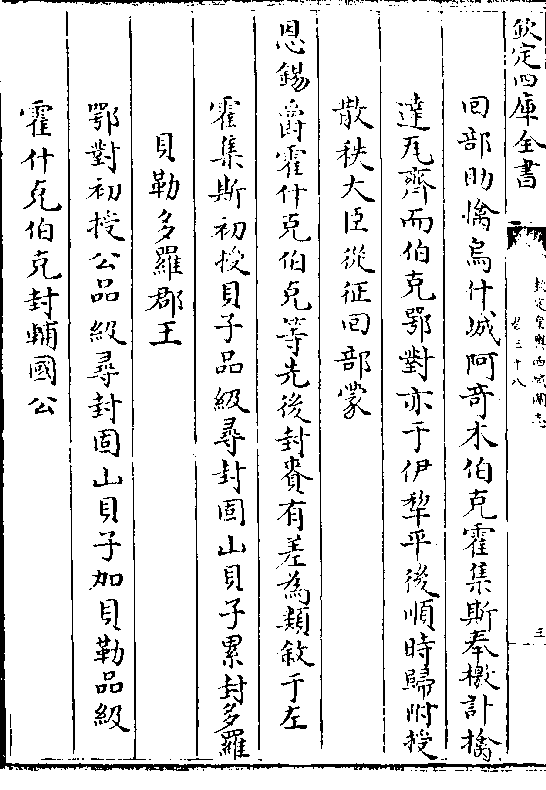 欽定四庫全書
欽定皇輿西域圖志
卷三十八
三
回部助懾烏什城阿奇木伯克霍集斯奉檄計擒
達瓦齊而伯克鄂對亦于伊犂平後順時歸附授
散秩大臣從征回部蒙
恩錫爵霍什克伯克等先後封賚有差為類敘于左
霍集斯初授貝子品級尋封固山貝子累封多羅
貝勒多羅郡王
鄂對初授公品級尋封固山貝子加貝勒品級
霍什克伯克封輔國公